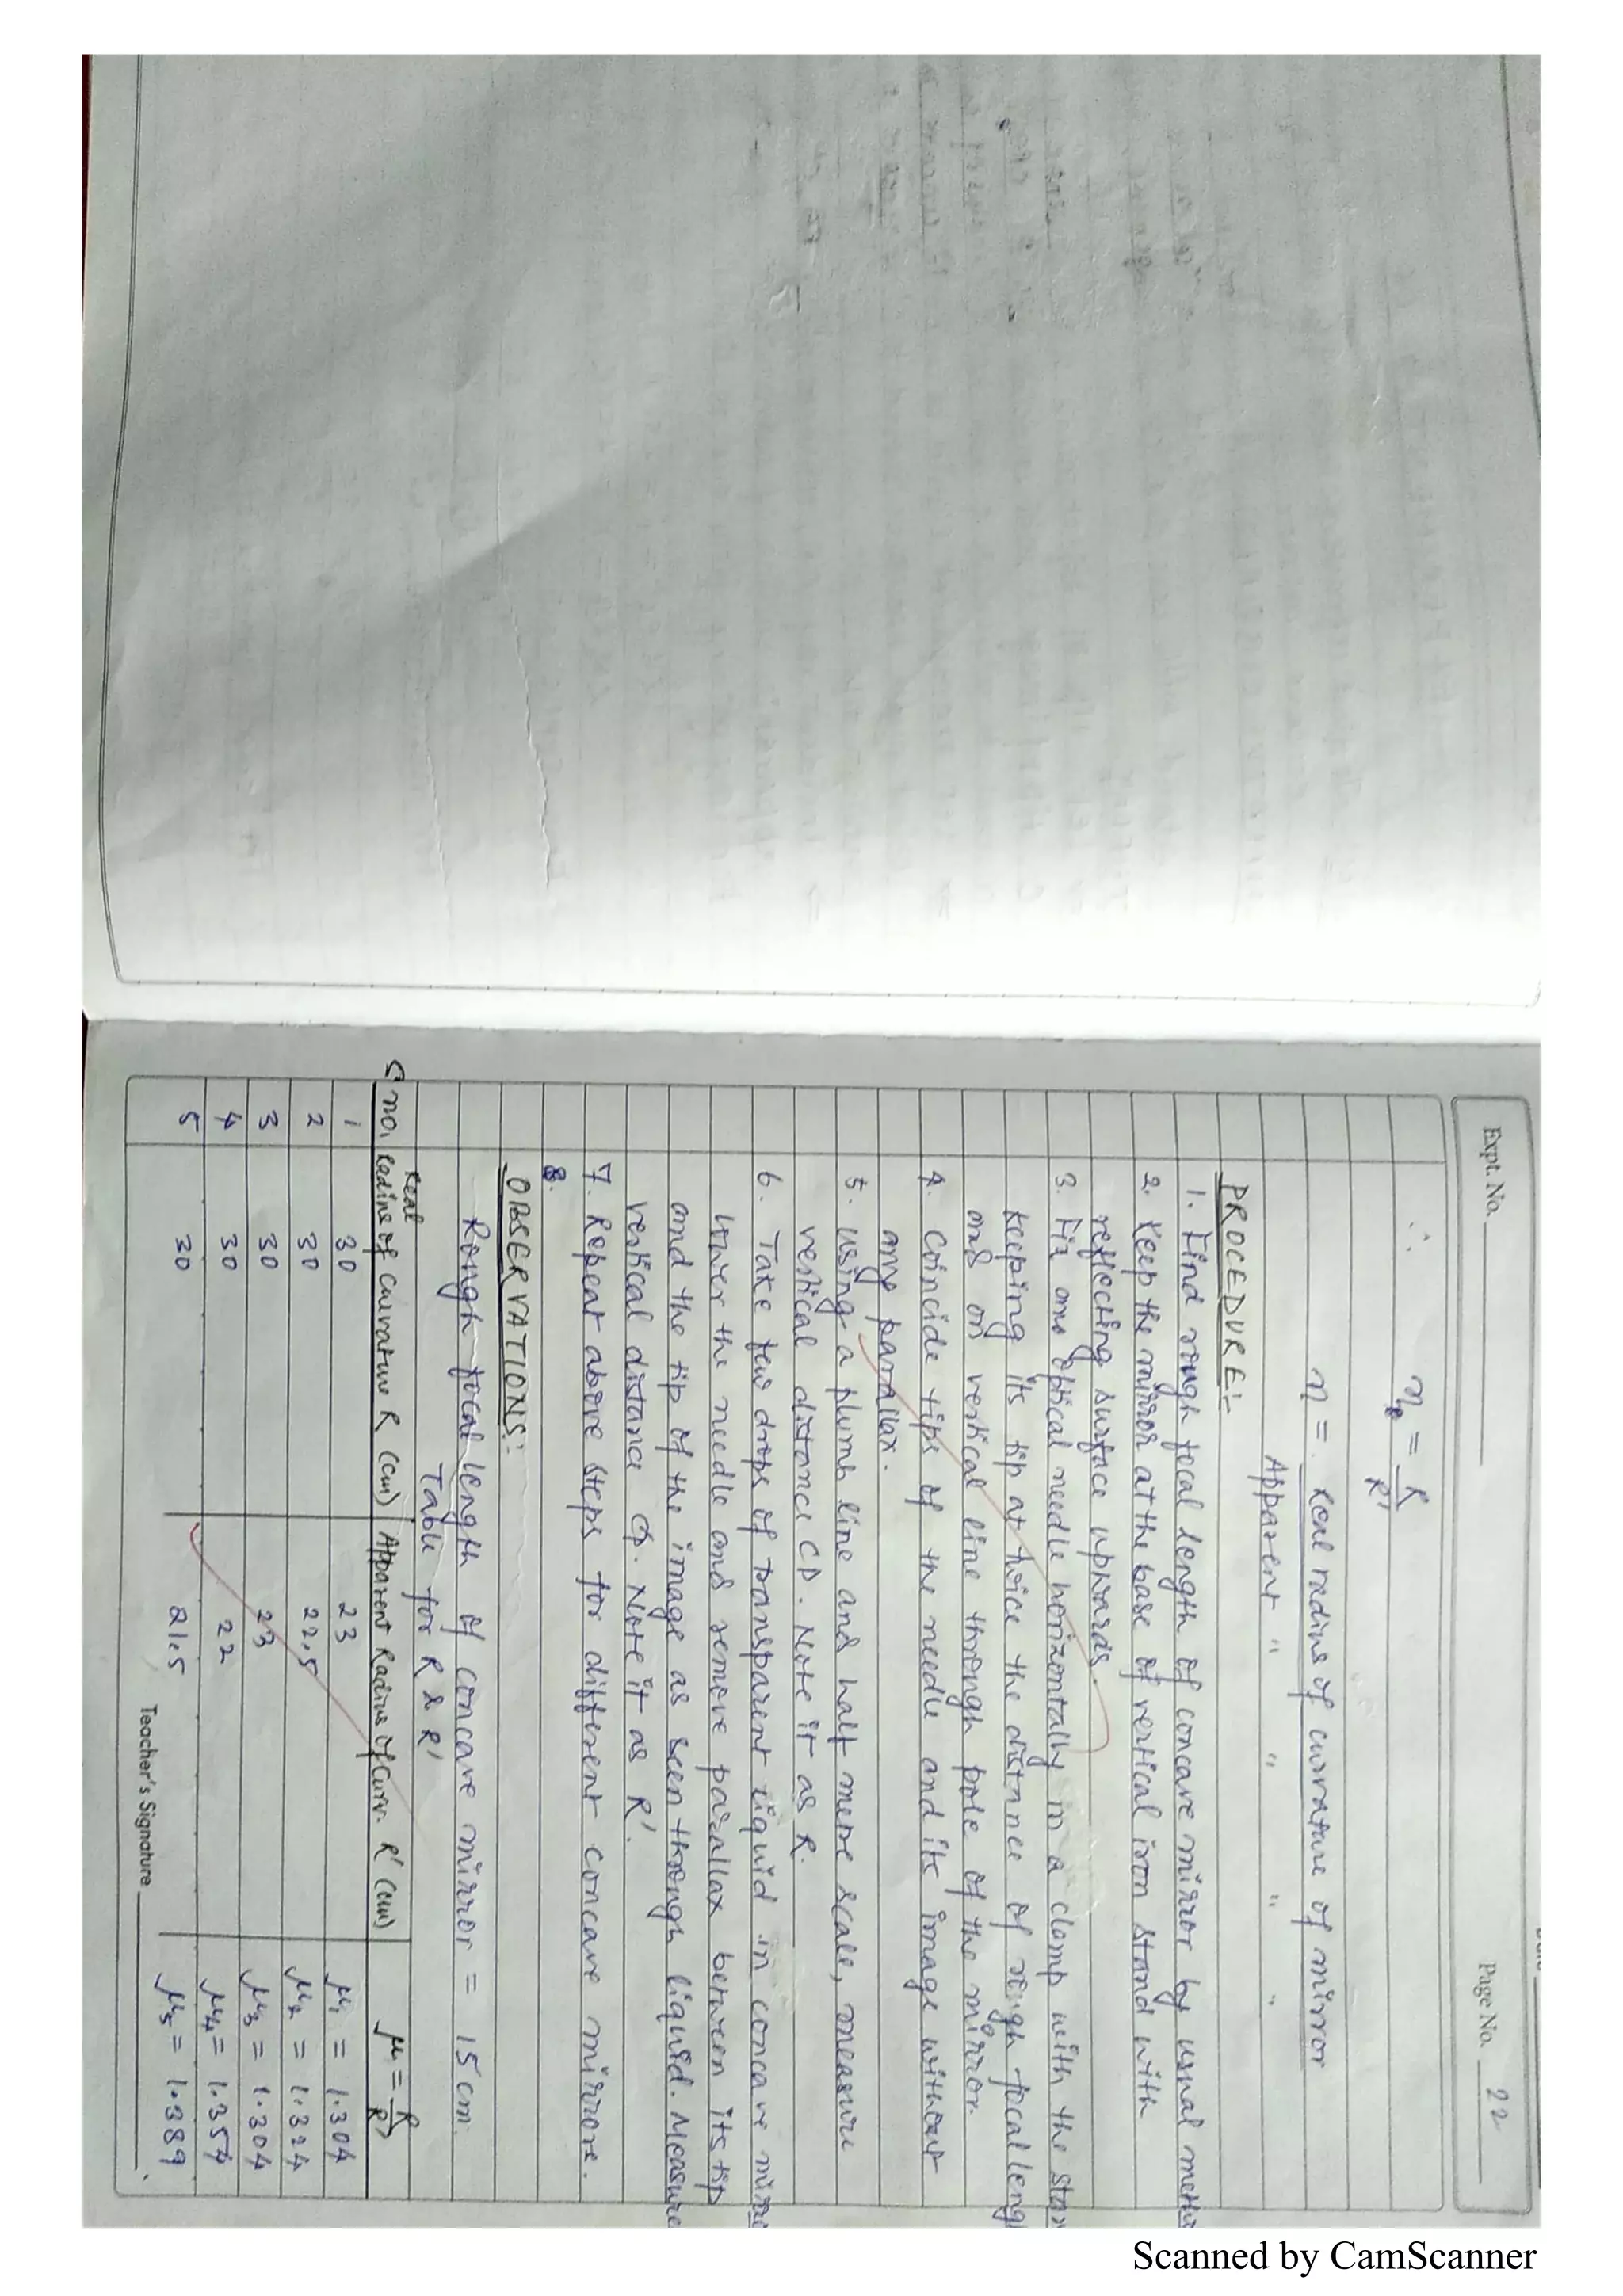 Expt. No.
Page No. 22
∴ n = R/R'
n = Real radius of curvature of mirror
Apparent " " " "
PROCEDURE:-
1. Find rough focal length of concave mirror by usual
2. Keep the mirror at the base of vertical iron stand with
reflecting surface upwards.
3. Fix one optical needle horizontally in a clamp with the
keeping its tip at twice the distance of rough focal
and on vertical line through pole of the mirror.
4. Coincide tips of the needle and its image without
any parallax.
5. Using a plumb line and half metre scale, measure
vertical distance CP. Note it as R.
6. Take few drops of transparent liquid in concave
lower the needle and remove parallax between its tip
and the tip of the image as seen through liquid. Measure
vertical distance. Note it as R'.
7. Repeat above steps for different concave mirrore.
8.
OBSERVATIONS:-
Rough focal length of concave mirror = 15cm.
Table for R & R'
S no. Real Radius of curvature R (cm) Apparent Radius of Curv. R' (cm) μ = R/R'
1 30 23 μ1 = 1.304
2 30 22.5 μ2 = 1.324
3 30 23 μ3 = 1.304
4 30 22 μ4 = 1.354
5 30 21.5 μ5 = 1.389
Teacher's Signature
Scanned by CamScanner